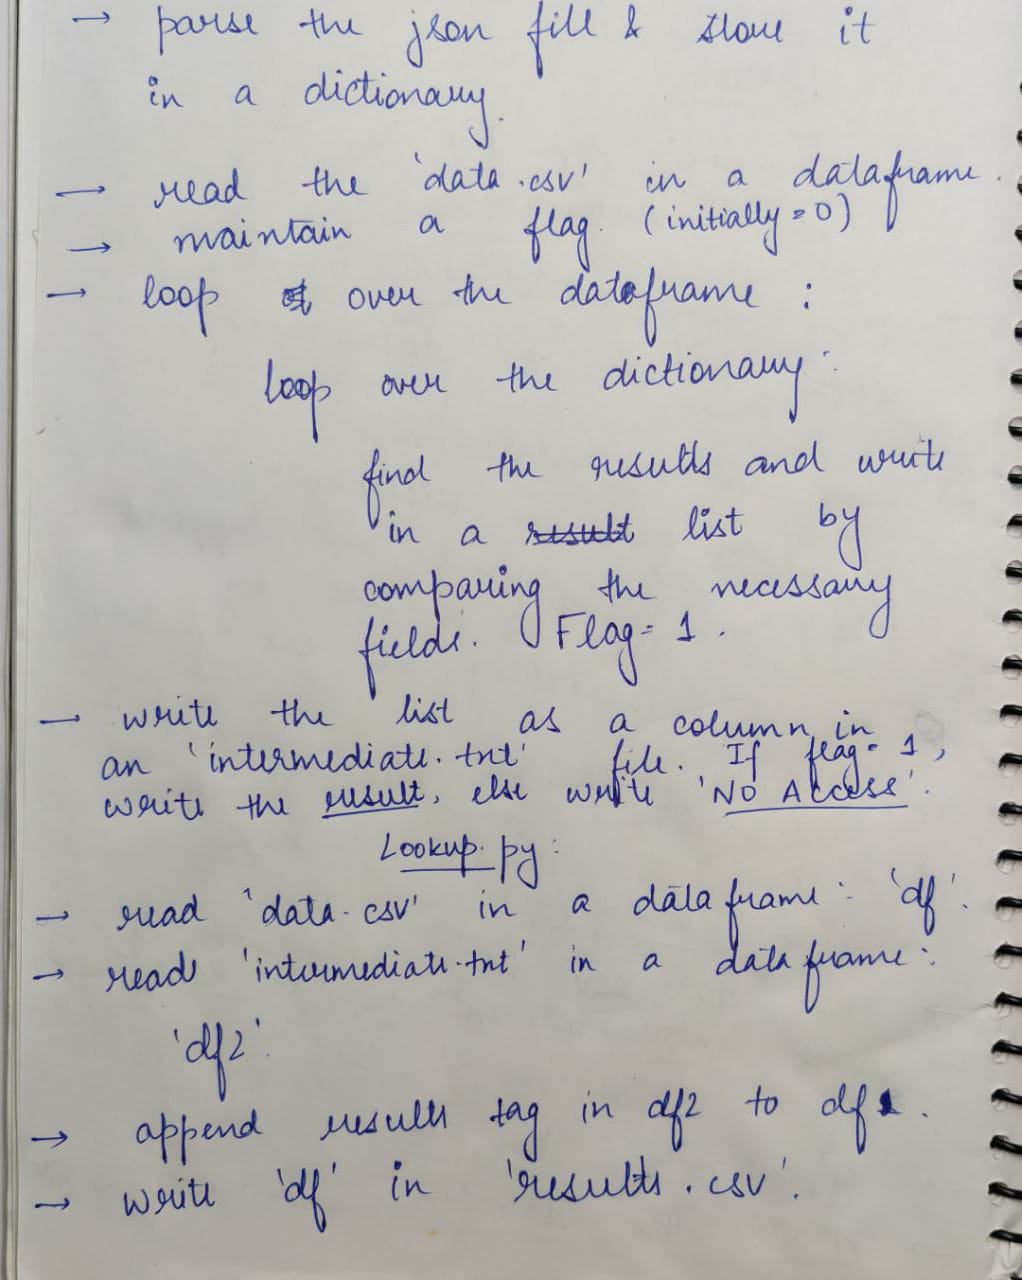 → parse the json file & store it
in a dictionary.
→ read the 'data.csv' in a dataframe.
→ maintain a flag. (initially = 0)
→ loop over the dataframe :
loop over the dictionary :
find the results and write
in a result list by
comparing the necessary
fields. Flag = 1.
→ write the list as a column in
an 'intermediate.txt' file. If flag = 1,
write the result, else write 'No Access'.
Lookup.py :
→ read 'data.csv' in a dataframe : 'df'.
→ read 'intermediate.txt' in a dataframe :
'df2'.
→ append results tag in df2 to df.
→ write 'df' in 'results.csv'.